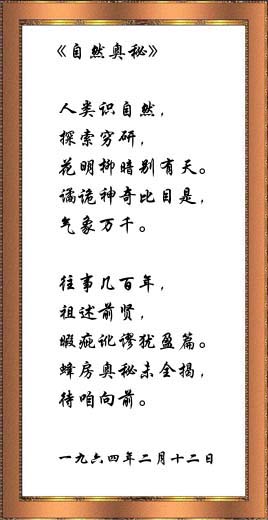 《自然奥秘》
人类识自然，
探索穷研，
花明柳暗别有天。
谲诡神奇比目是，
气象万千。
往事几百年，
祖述前贤，
瑕疵讹谬犹盈篇。
蜂房奥秘未全揭，
待咱向前。
一九六四年二月十二日